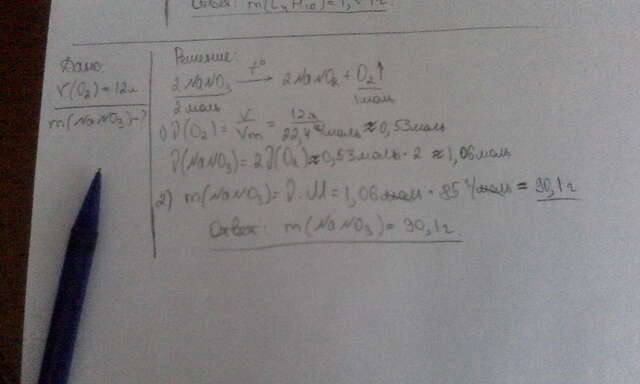 Ответ: m(C₄H₁₀) =
Дано
V(O₂) = 12л
m(NaNO₃) - ?
Решение:
2NaNO₃ t° → 2NaNO₂ + O₂↑
2моль 1моль
1) ν(O₂) = V/Vm = 12л/22,4 л/моль ≈ 0,53моль
ν(NaNO₃) = 2ν(O₂) ≈ 0,53моль · 2 ≈ 1,06моль
2) m(NaNO₃) = ν · M = 1,06моль · 85 г/моль = 90,1г
Ответ: m(NaNO₃) = 90,1г.